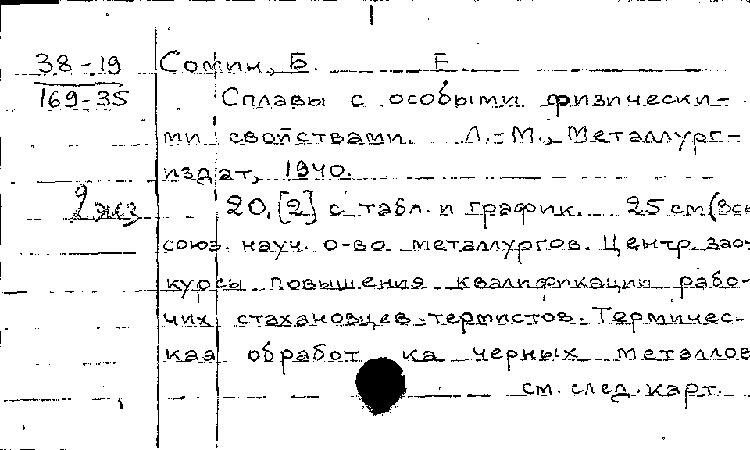 38-19
169-35
Сомин, Б. Е
Сплавы с особыми физически-
ми свойствами. Л.-М., Металлург-
издат, 1940.
2 экз
20, [2] с табл. и график. 25 см (Вс
союз. науч. о-во металлургов. Центр. зао
курсы повышения квалификации рабо-
чих стахановцев-термистов. Термичес-
кая обработ ка черных металлов
см. след. карт.